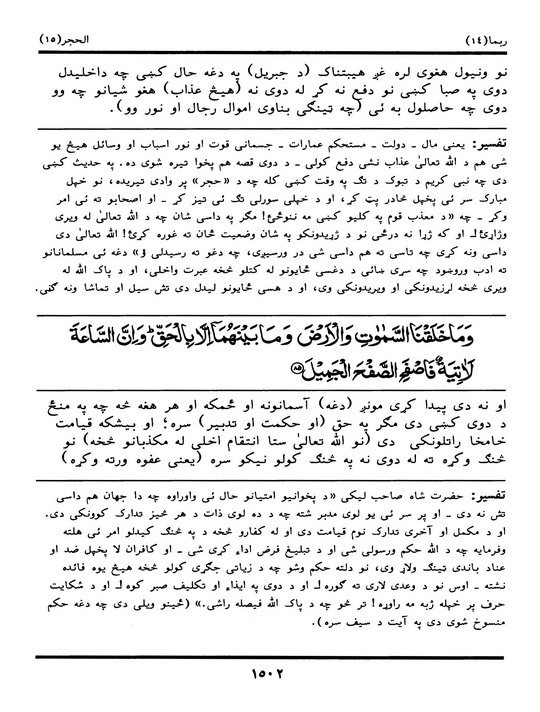 ربما(١٤)
الحجر(١٥)
نو ونیول هغوی لره غږ هیبتناک (د جبریل) په دغه حال کښی چه داخلیدل
دوی په صبا کښی نو دفع نه کړ له دوی نه (هیڅ عذاب) هغو شیانو چه وو
دوی چه حاصلول به ئی (چه تینګی بناوی اموال رجال او نور وو).
تفسیر: یعنی مال ـ دولت ـ مستحکم عمارات ـ جسمانی قوت او نور اسباب او وسائل هیڅ یو
شی هم د الله تعالیٰ عذاب نشی دفع کولی ـ د دوی قصه هم پخوا تیره شوی ده. په حدیث کښی
دی چه نبی کریم د تبوک د تګ په وقت کښی کله چه د «حجر» پر وادی تیریده، نو خپل
مبارک سر ئی پخپل څادر پټ کړ، او د خپلی سورلی تګ ئی تیز کړ ـ او اصحابو ته ئی امر
وکړ ـ چه «د معذب قوم په کلیو کښی مه ننوځئ! مګر په داسی شان چه د الله تعالیٰ له ویری
وژاړئ! ـ او که ژړا نه درځی نو د ژړیدونکو په شان وضعیت ځان ته غوره کړئ! الله تعالیٰ دی
داسی ونه کړی چه تاسی ته هم داسی شی در ورسیږی، چه دغو ته رسیدلی ؤ» دغه ئی مسلمانانو
ته ادب وروښود چه سړی ښائی د دغسی ځایونو له کتلو څخه عبرت واخلی، او د پاک الله له
ویری څخه لړزیدونکی او ویریدونکی وی، او د هسی ځایونو لیدل دی تش سیل او تماشا ونه ګڼی.
وَمَا خَلَقْنَا السَّمٰوٰتِ وَالْاَرْضَ وَمَا بَيْنَهُمَاۤ اِلَّا بِالْحَقِّ ؕ وَاِنَّ السَّاعَةَ
لَاٰتِيَةٌ فَاصْفَحِ الصَّفْحَ الْجَمِيْلَ ﴿٨٥﴾
او نه دی پیدا کړی مونږ (دغه) آسمانونه او ځمکه او هر هغه څه چه په منځ
د دوی کښی دی مګر په حق (او حکمت او تدبیر) سره؛ او بیشکه قیامت
خامخا راتلونکی دی (نو الله تعالیٰ ستا انتقام اخلی له مکذبانو څخه) نو
څنګ وکړه ته له دوی نه په څنګ کولو نیکو سره (یعنی عفوه ورته وکړه)
تفسیر: حضرت شاه صاحب لیکی «د پخوانیو امتیانو حال ئی واوراوه چه دا جهان هم داسی
تش نه دی ـ او پر سر ئی یو لوی مدبر شته چه د ده لوی ذات د هر څیز تدارک کوونکی دی.
او د مکمل او آخری تدارک نوم قیامت دی او له کفارو څخه د په څنګ کیدلو امر ئی هلته
وفرمایه چه د الله حکم ورسولی شی او د تبلیغ فرض اداء کړی شی ـ او کافران لا پخپل ضد او
عناد باندی تینګ ولاړ وی، نو دلته حکم وشو چه د زیاتی جګړی کولو څخه هیڅ یوه فائده
نشته ـ اوس نو د وعدی لاری ته ګوره! ـ او د دوی په ایذاء او تکلیف صبر کوه! ـ او د شکایت
حرف پر خپله ژبه مه راوړه! تر څو چه د پاک الله فیصله راشی.» (ځینو ویلی دی چه دغه حکم
منسوخ شوی دی په آیت د سیف سره).
١٥٠٢